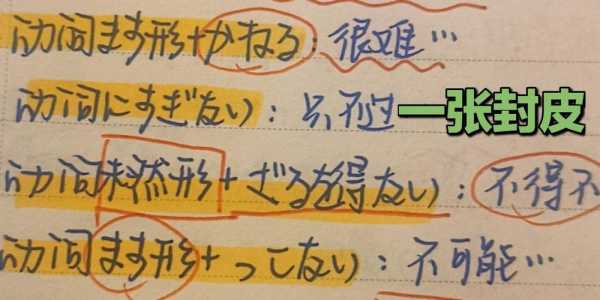 动词ます形+かねる：很难…
动词にすぎない：只不过
一张封皮
动词未然形+ざるを得ない：不得不
动词ます形+っこない：不可能…